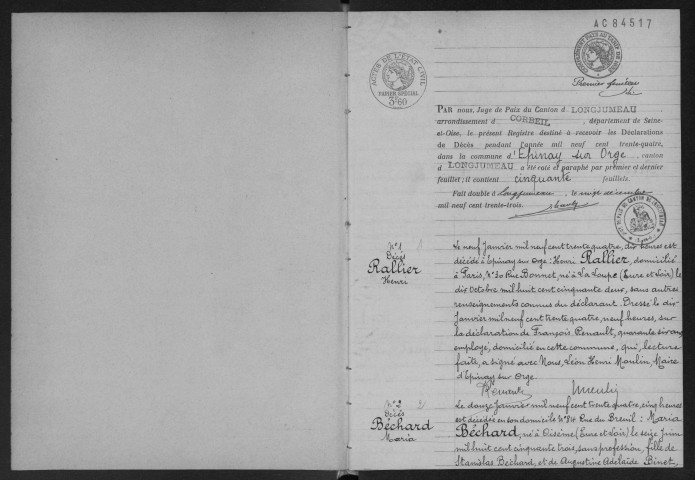 AC84517
ACTES DE L'ETAT CIVIL
PAPIER SPÉCIAL
3f60
Premier feuillet
PAR nous, Juge de Paix du Canton d LONGJUMEAU
arrondissement d CORBEIL, département de Seine-
et-Oise, le présent Registre destiné à recevoir les Déclarations
de Décès pendant l'année mil neuf cent trente-quatre,
dans la commune d'Epinay sur Orge, canton
d LONGJUMEAU a été coté et paraphé par premier et dernier
feuillet; il contient cinquante feuillets.
Fait double à Longjumeau, le décembre
mil neuf cent trente-trois.
N°1
Décès
Rallier
Henri
1
Le neuf Janvier mil neuf cent trente quatre, dix heures est
décédé à Epinay sur Orge: Henri Rallier, domicilié
à Paris, N°30 Rue Bonnet, né à La Loupe (Eure et Loir) le
dix Octobre mil huit cent cinquante deux, sans autres
renseignements connus du déclarant. Dressé le dix
Janvier mil neuf cent trente quatre, neuf heures, sur
la déclaration de François Renault, quarante six ans
employé, domicilié en cette commune, qui, lecture
faite, a signé avec Nous, Léon Henri Moulin, Maire
d'Epinay sur Orge.
Renault Moulin
N°2
Décès
Béchard
Maria
2
Le douze Janvier mil neuf cent trente quatre, cinq heures
est décédée en son domicile N°84 Rue du Breuil: Maria
Béchard, né à Oisème (Eure et Loir) le seize Juin
mil huit cent cinquante trois, sans profession, fille de
Stanislas Béchard, et de Augustine Adélaïde Binet,